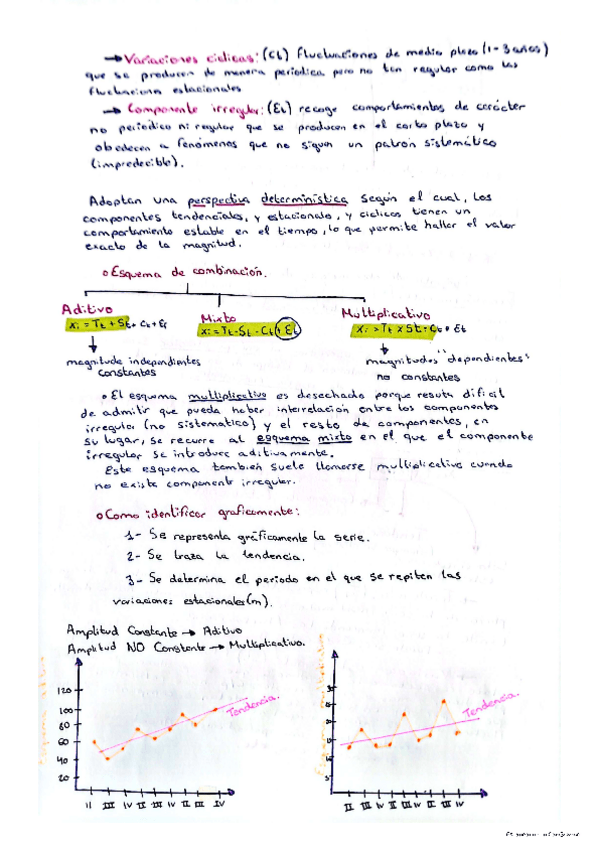 → Variaciones cíclicas: (Ct) fluctuaciones de medio plazo (1-3 años)
que se producen de manera periodica pero no tan regular como las
fluctuaciones estacionales
→ Componente irregular: (Et) recoge comportamientos de carácter
no periodico ni regular que se producen en el corto plazo y
obedecen a fenómenos que no siguen un patrón sistemático
(impredecible).
Adoptan una perspectiva determinística según el cual, los
componentes tendenciales, y estacionals, y cíclicos tienen un
comportamiento estable en el tiempo, lo que permite hallar el valor
exacto de la magnitud.
o Esquema de combinación.
Aditivo Mixto Multiplicativo
xi = Tt + St + Ct + Et xi = Tt · St · Ct + Et xi = Tt x St · Ct · Et
magnitude independientes magnitudes "dependientes"
constantes no constantes
o El esquema multiplicativo es desechado porque resulta dificil
de admitir que pueda haber interrelación entre los componentes
irregular (no sistematico) y el resto de componentes, en
su lugar, se recurre al esquema mixto en el que el componente
irregular se introduce aditivamente.
Este esquema también suele llamarse multiplicativo cuando
no existe componente irregular.
o Como identificar graficamente:
1- Se representa gráficamente la serie.
2- Se traza la tendencia.
3- Se determina el periodo en el que se repiten las
variaciones estacionales (m).
Amplitud Constante → Aditivo
Amplitud NO Constante → Multiplicativo.
120
100
80
60
40
20
Tendencia
II III IV II III IV II III IV
Tendencia
5
II III IV II III IV II III IV